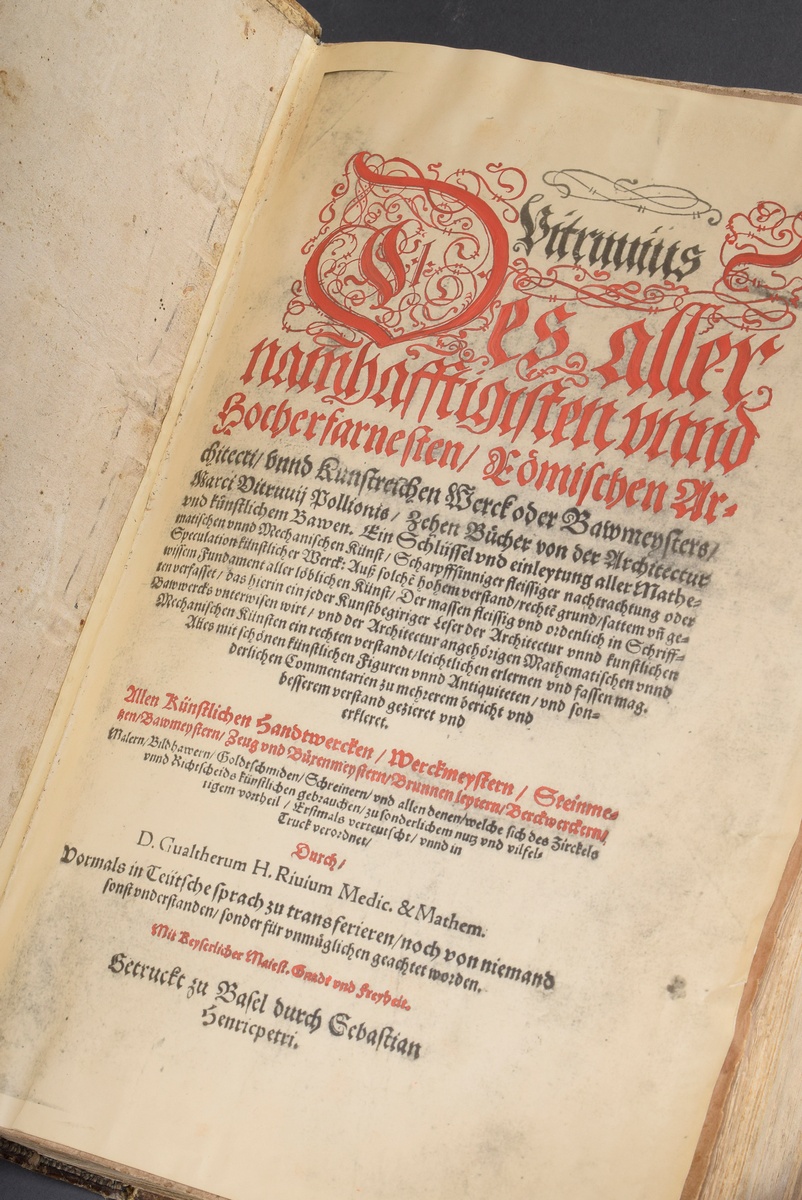 Vitruuius
Des aller
namhafftigisten vnnd
Hocherfarnesten/ Römischen Ar-
chitecti/ vnnd Kunstreichen Werck oder Bawmeysters/
Marci Vitruuij Pollionis/ Zehen Bücher von der Architectur
vnd künstlichem Bawen. Ein Schlüssel vnd einleytung aller Mathe-
matischen vnnd Mechanischen Künst/ Scharpffsinniger fleissiger nachtrachtung oder
Speculation künstlicher Werck: Auß solchē hohem verstand/ rechtē grund/ sattem vñ ge-
wissem Fundament aller löblichen Künst/ Der massen fleissig vnd ordenlich in Schriff-
ten verfasset/ das hierin ein jeder Kunstbegiriger Leser der Architectur vnnd kunstlichen
Bawwercks vnterwisen wirt/ vnd der Architectur angehörigen Mathematischen vnnd
Mechanischen Künsten ein rechten verstandt/ leichtlichen erlernen vnd fassen mag.
Alles mit schönen künstlichen Figuren vnnd Antiquiteten/ vnd son-
derlichen Commentarien zu mehrerem bericht vnd
besserem verstand gezieret vnd
erkleret.
Allen Künstlichen Handtwercken/ Werckmeystern/ Steinme-
tzen/ Bawmeystern/ Zeug vnd Büxenmeystern/ Brunnen leytern/ Berckwerckern/
Malern/ Bildhawern/ Goldtschmiden/ Schreinern/ vnd allen denen/ welche sich des Zirckels
vnnd Richtscheids künstlichen gebrauchen/ zu sonderlichem nutz vnd vilfel-
tigem vortheil/ Erstmals verteutscht/ vnnd in
Truck verordnet/
Durch/
D. Gualtherum H. Riuium Medic. & Mathem.
Vormals in Teütsche sprach zu transferieren/ noch von niemand
sonst vnderstanden/ sonder für vnmüglichen geachtet worden.
Mit Keyserlicher Maiest. Gnade vnd Freyheit.
Getruckt zu Basel durch Sebastian
Henricpetri.